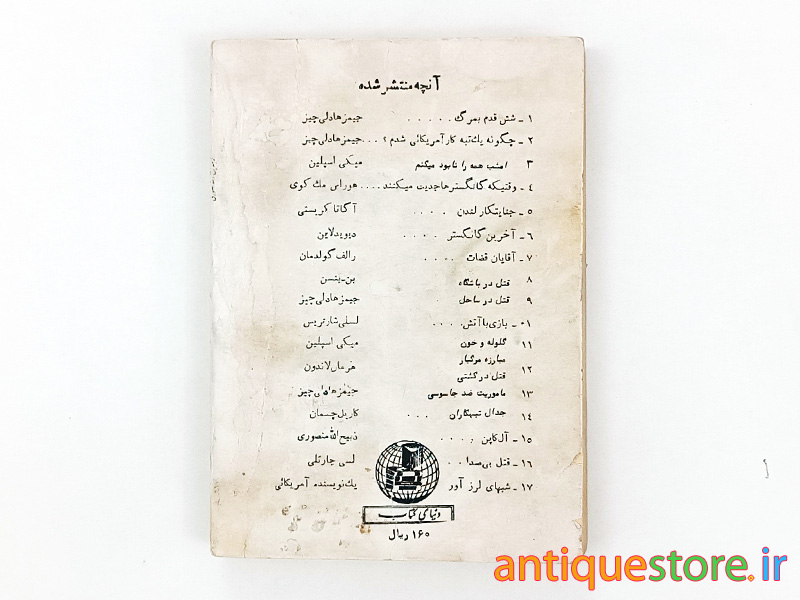 آنچه منتشر شده
۱ - شش قدم بمرگ . . . . . جیمزهادلی چیز
۲ - چگونه یك تبه کار آمریکائی شدم ؟ . . . جیمزهادلی چیز
۳ امشب همه را نابود میکنم میکی اسپلین
۴ - وقتیکه گانگسترها جدیت میکنند . . . . هوراس مك کوی
۵ - جنایتکار لندن . . . . آگاتا کریستی
۶ - آخرین گانگستر . . . . دیویدلاین
۷ - آقایان قضات . . . . رالف گولدمان
۸ قتل در باشگاه بن-بنسن
۹ قتل در ساحل جیمز هادلی چیز
۱۰ - بازی با آتش . . . . لسلی شارتریس
۱۱ گلوله و خون میکی اسپلین
مبارزه مرگبار
۱۲ قتل در کشتی هرمان لاندون
۱۳ ماموریت ضد جاسوسی جیمزهادلی چیز
۱۴ جدال تبهکاران . . . کاریل چسمان
۱۵ - آل کاپن . . . . ذبیح الله منصوری
۱۶ - قتل بی صدا . . . لسی چارتلی
۱۷ - شبهای لرز آور یك نویسنده آمریکائی
دنیای کتاب
۱۶۰ ریال
antiquestore.ir